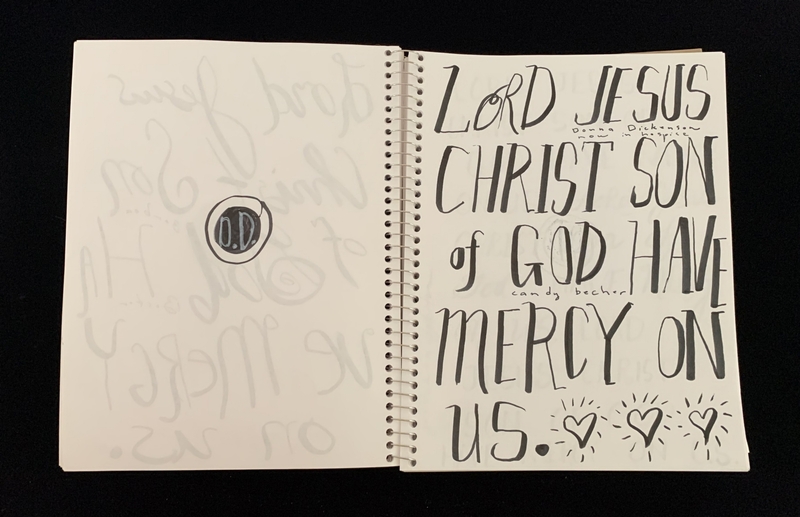 O.D.
LORD JESUS
Donna Dickenson
now in hospice
CHRIST SON
of GOD HAVE
candy becher
MERCY ON
US.